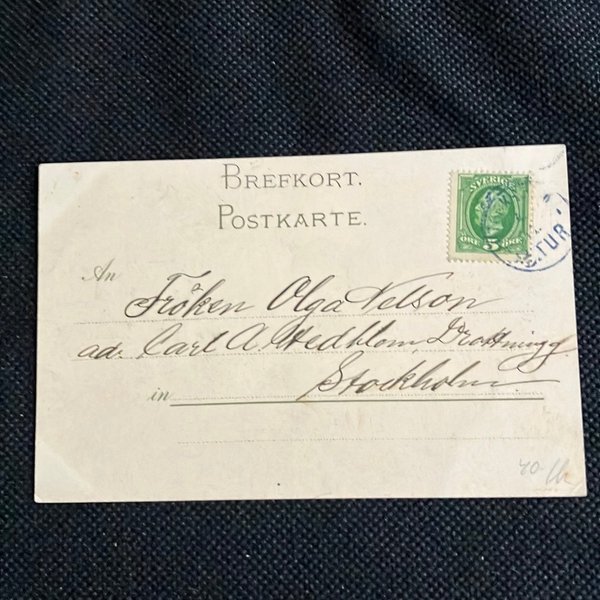 BREFKORT.
POSTKARTE.
SVERIGE
ÖRE 5 ÖRE
TUR
An
Fröken Olga Nelson
ad. Carl A. Hedblom Drottningg.
in Stockholm
40